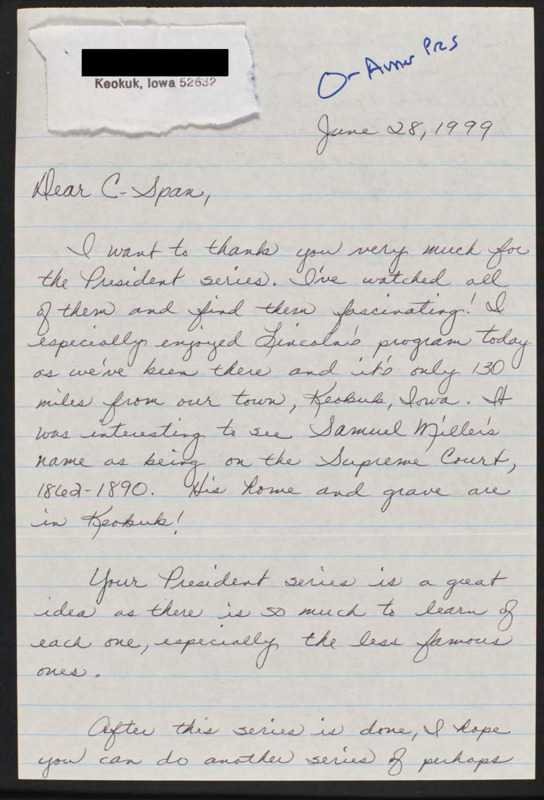 Keokuk, Iowa 52632
O- Amer Prs
June 28, 1999
Dear C-Span,
I want to thank you very much for
the President series. I've watched all
of them and find them fascinating! I
especially enjoyed Lincoln's program today
as we've been there and it's only 130
miles from our town, Keokuk, Iowa. It
was interesting to see Samuel Miller's
name as being on the Supreme Court,
1862-1890. His home and grave are
in Keokuk!
Your President series is a great
idea as there is so much to learn of
each one, especially the less famous
ones.
After this series is done, I hope
you can do another series of perhaps